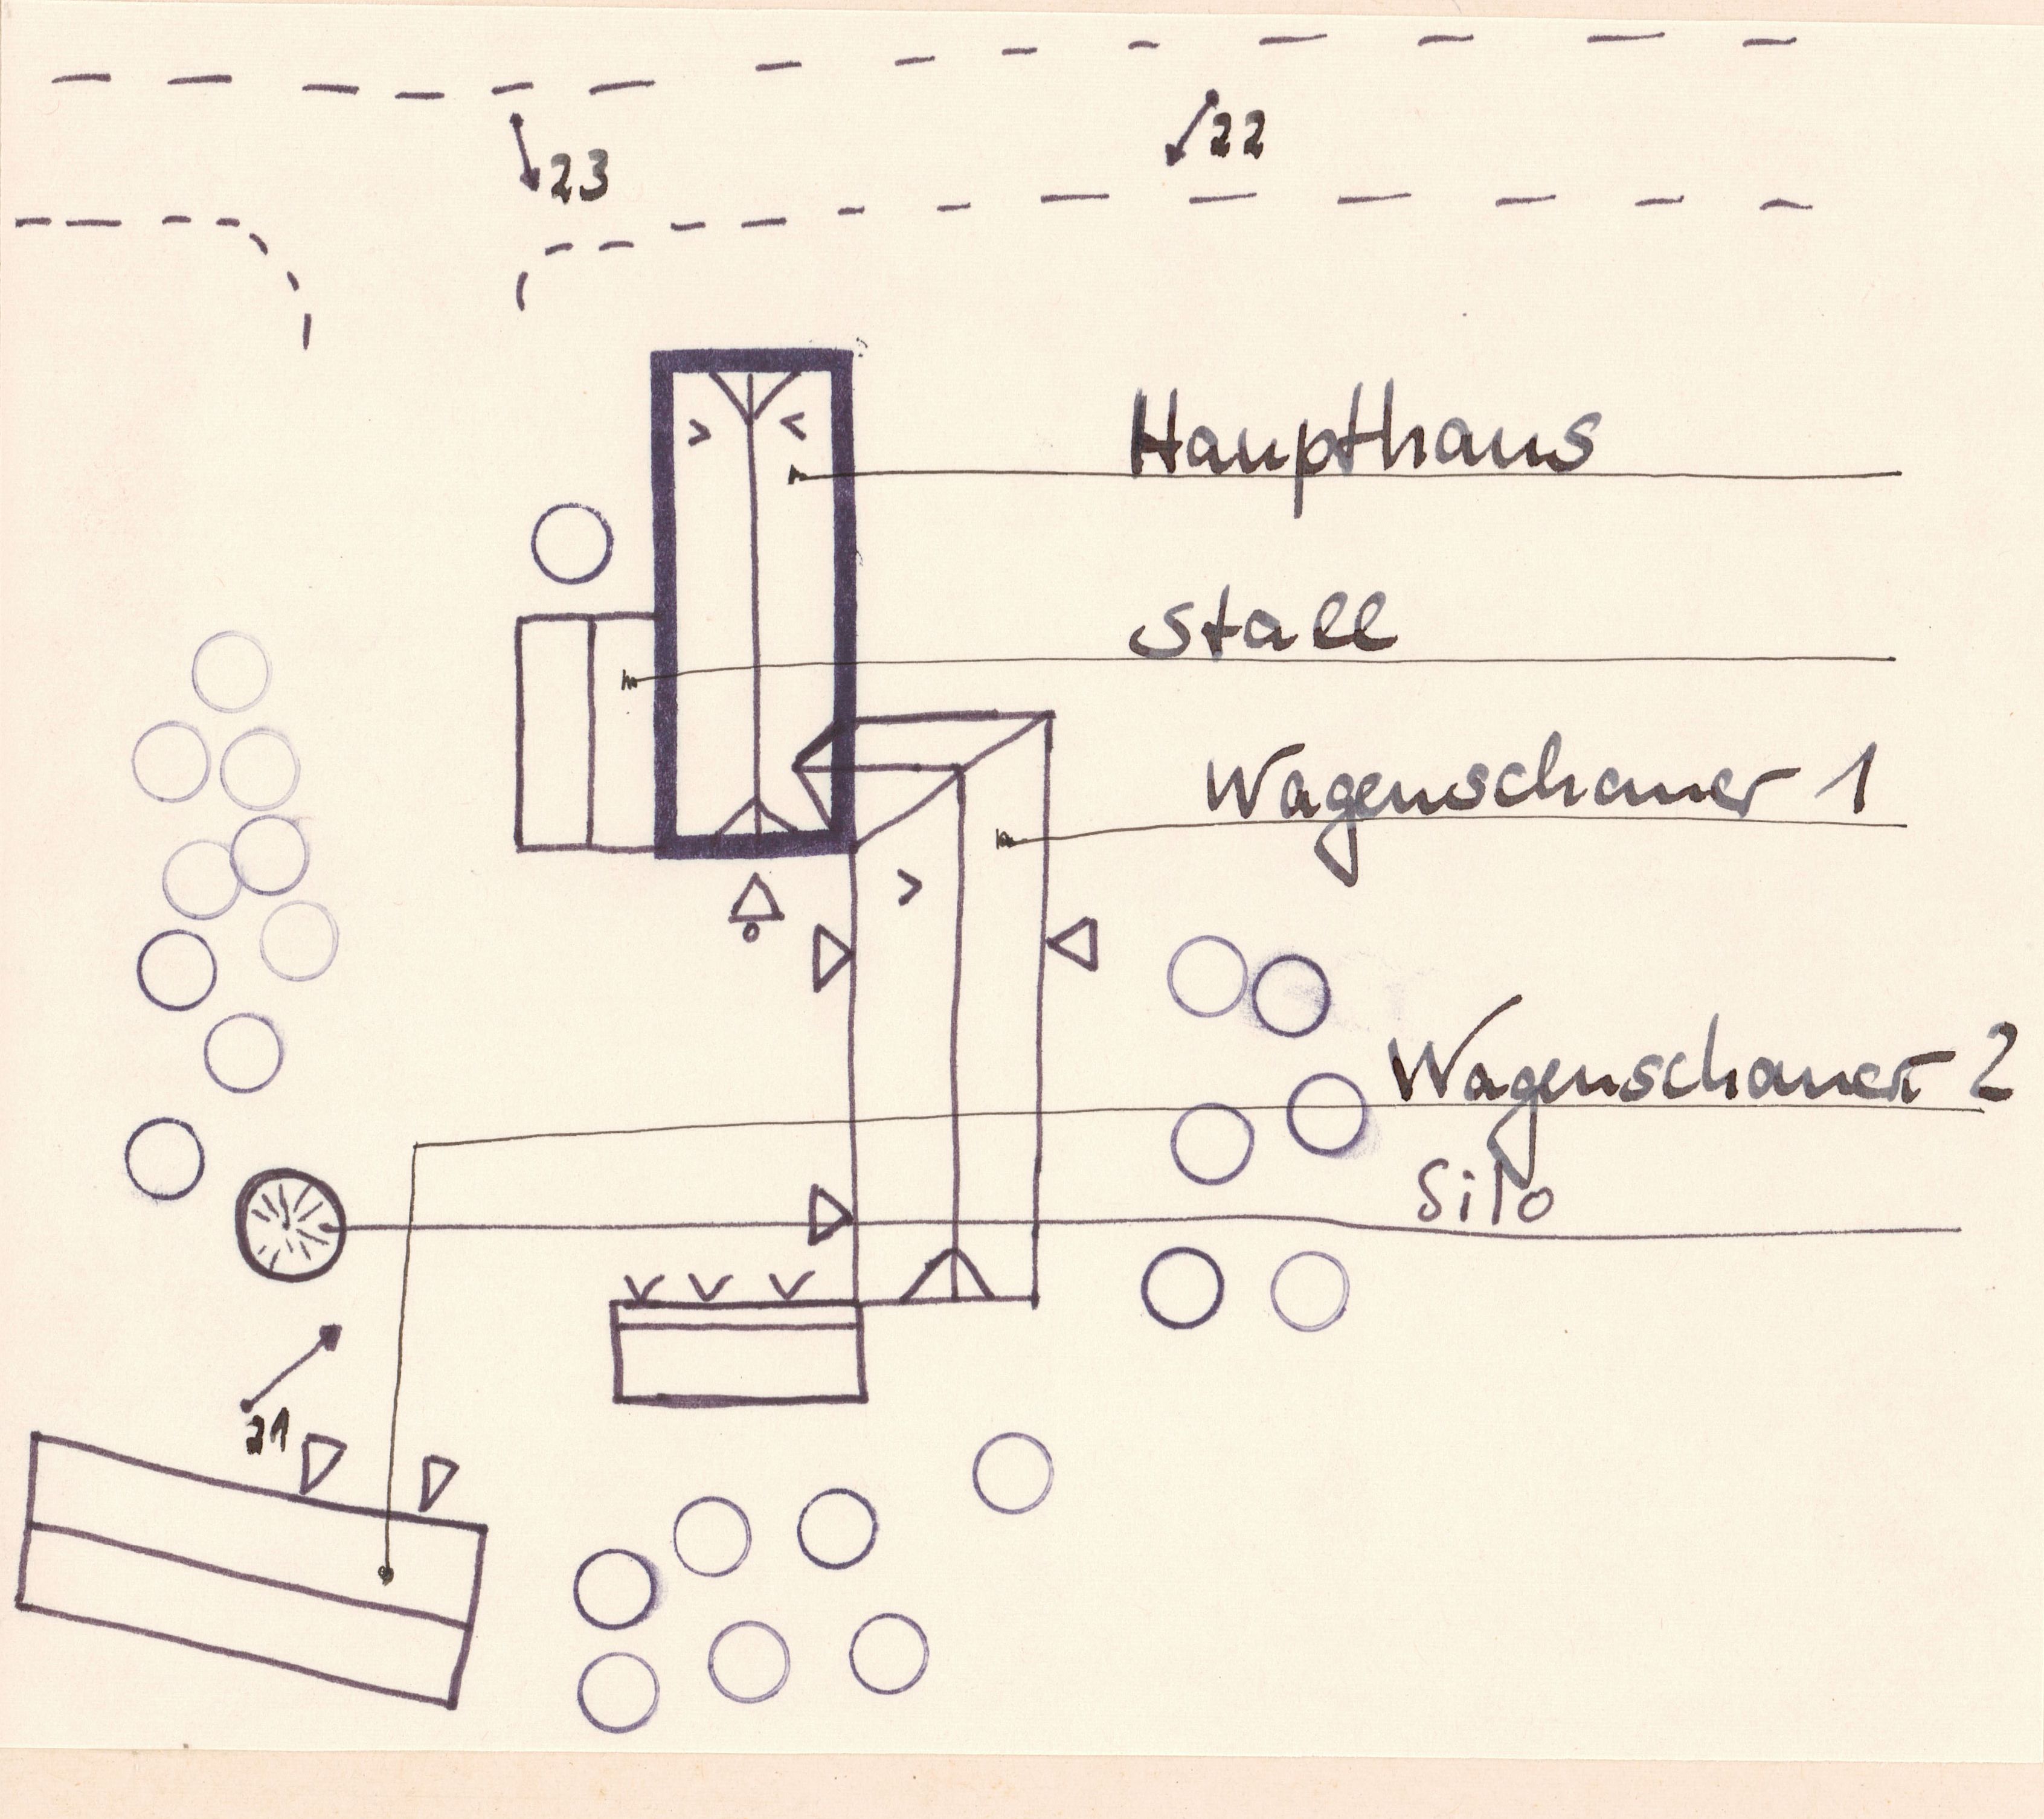 22
23
Haupthaus
Stall
Wagenschauer 1
Wagenschauer 2
Silo
21